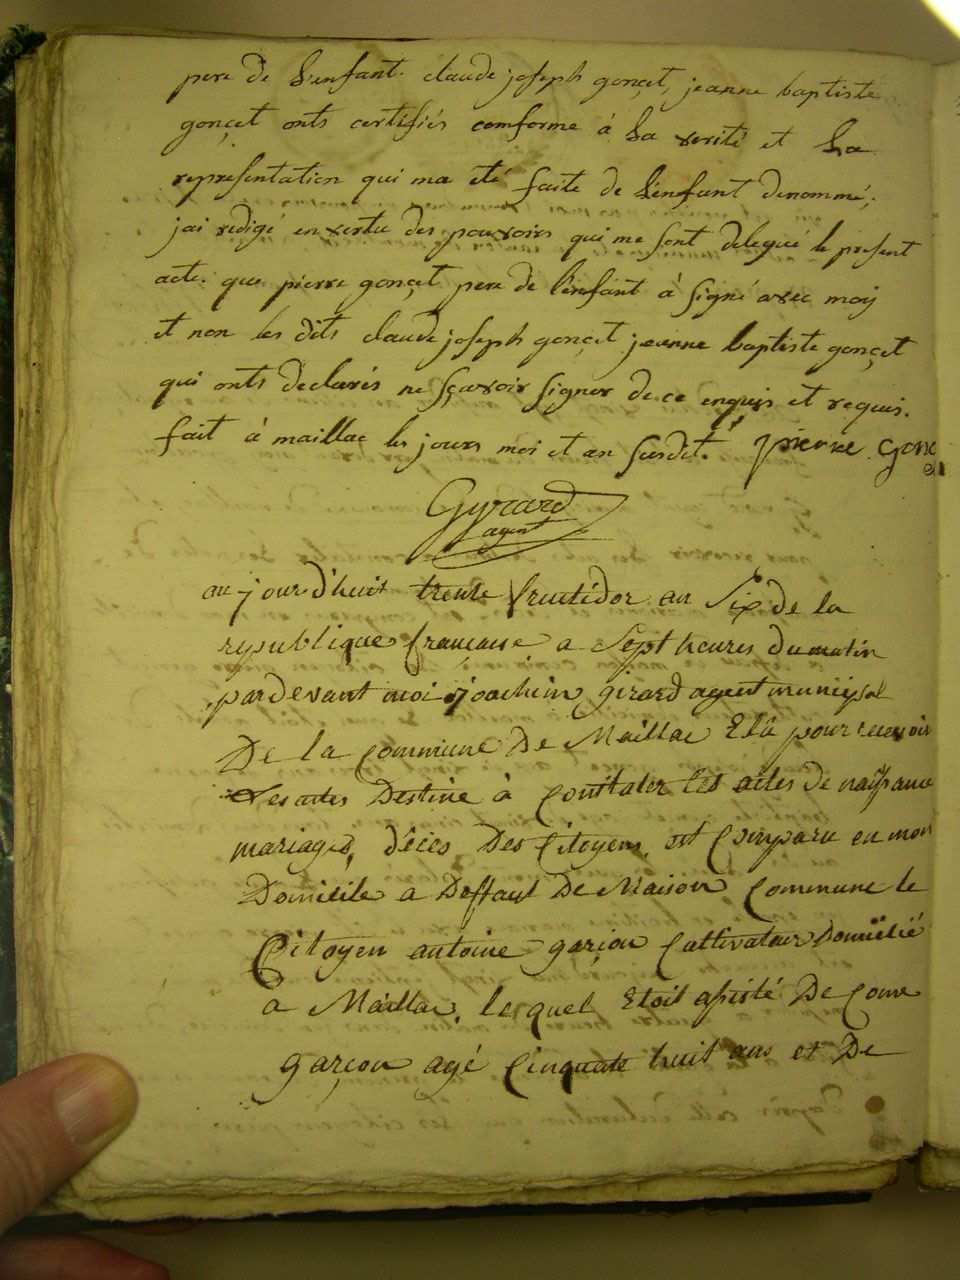 pere de L'enfant. claude joseph gonçet, jeanne baptiste
gonçet onts certifiés comforme à La verité et La
representation qui ma eté faite de L'enfant denommé;
jai redigé en vertu des pouvoirs qui me sont delegué le present
acte. que pierre gonçet pere de l'enfant à signé avec moy
et non les dits claude joseph gonçet jeanne baptiste gonçet
qui onts declarés ne sçavoir signer de ce enquis et requis.
fait à maillac les jours moi et an susdit. pierre gonc
Gyrard
agent
aujourd'huit trente fructidor an Six de la
republique française a Sept heures du matin
pardevant moi joachim girard agent municipal
De la commune De Maillac Elû pour recevoir
Les actes Destiné à Constater les actes de naissance
mariages, déces Des Citoyens, est Comparu en mon
Domicile a Deffaut De Maison Commune le
Citoyen antoine garçon Cultivateur Domicilié
a Maillac, le quel Etoit assisté De Come
garçon agé Cinquante huit ans et De